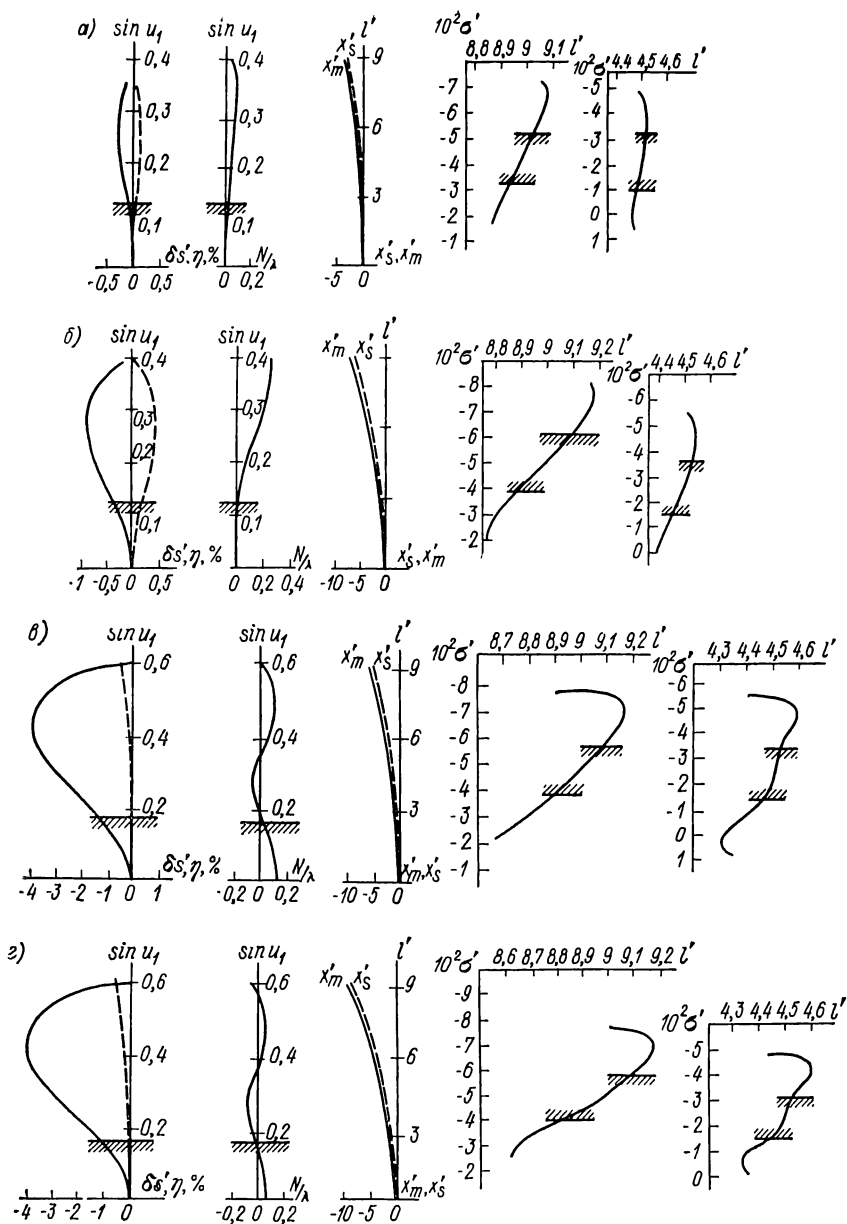 а)
sin u₁
0,4
0,3
0,2
0,1
δs',η,%
-0,5 0 0,5
sin u₁
0,4
0,3
0,2
0,1
N/λ
0 0,2
l'
x'ₘ x'ₛ
9
6
3
x'ₛ, x'ₘ
-5 0
10²σ'
8,8 8,9 9 9,1 l'
-7
-6
-5
-4
-3
-2
-1
10²σ'
4,4 4,5 4,6 l'
-5
-4
-3
-2
-1
0
1
б)
sin u₁
0,4
0,3
0,2
0,1
δs',η,%
-1 -0,5 0 0,5
sin u₁
0,4
0,3
0,2
0,1
N/λ
0 0,2 0,4
l'
x'ₘ x'ₛ
x'ₛ, x'ₘ
-10 -5 0
10²σ'
8,8 8,9 9 9,1 9,2 l'
-8
-7
-6
-5
-4
-3
-2
10²σ'
4,4 4,5 4,6 l'
-6
-5
-4
-3
-2
-1
0
в)
sin u₁
0,6
0,4
0,2
δs',η,%
-4 -3 -2 -1 0 1
sin u₁
0,6
0,4
0,2
N/λ
-0,2 0 0,2
l'
x'ₘ x'ₛ
9
6
3
x'ₘ, x'ₛ
-10 -5 0
10²σ'
8,7 8,8 8,9 9 9,1 9,2 l'
-8
-7
-6
-5
-4
-3
-2
-1
10²σ'
4,3 4,4 4,5 4,6 l'
-6
-5
-4
-3
-2
-1
0
1
г)
sin u₁
0,6
0,4
0,2
δs',η,%
-4 -3 -2 -1 0
sin u₁
0,6
0,4
0,2
N/λ
-0,2 0 0,2
l'
x'ₘ x'ₛ
9
6
3
x'ₘ, x'ₛ
-10 -5 0
10²σ'
8,6 8,7 8,8 8,9 9 9,1 9,2 l'
-9
-8
-7
-6
-5
-4
-3
-2
10²σ'
4,3 4,4 4,5 4,6 l'
-5
-4
-3
-2
-1
0